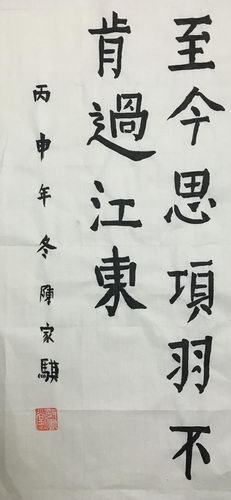 至今思項羽不
肯過江東
丙申年冬陳家騏